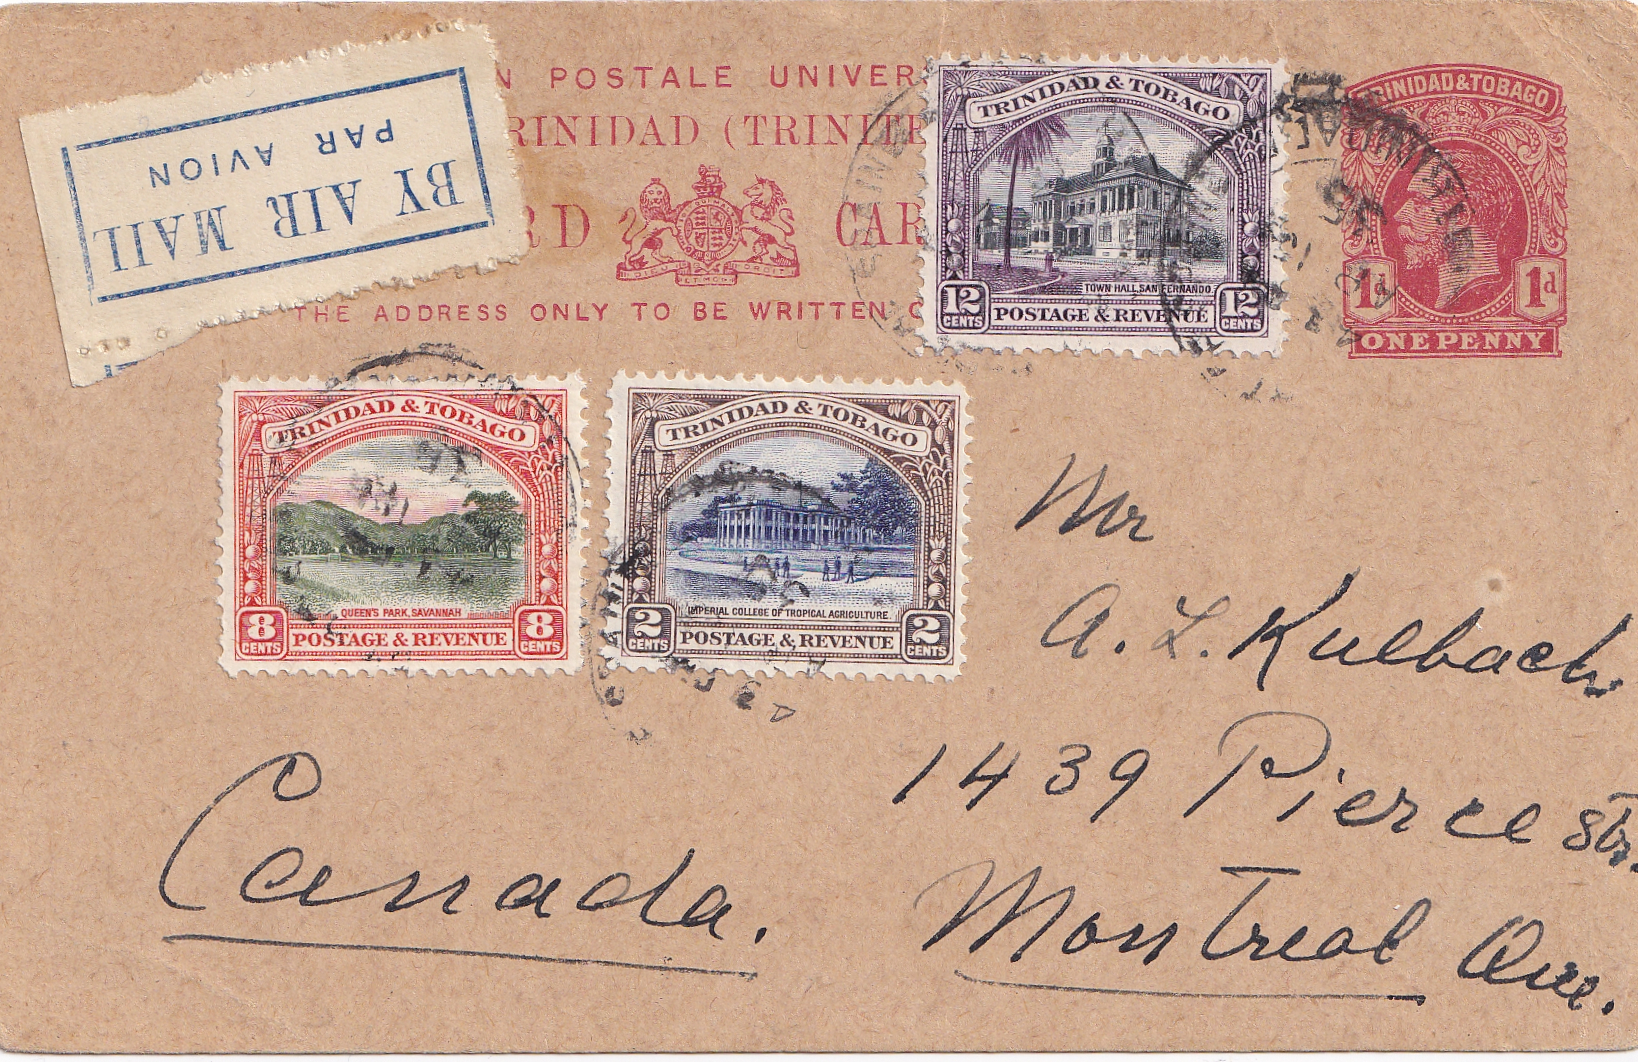 N POSTALE UNIVER
RINIDAD (TRINITE
RD CAR
THE ADDRESS ONLY TO BE WRITTEN O
BY AIR MAIL
PAR AVION
TRINIDAD & TOBAGO
TOWN HALL, SAN FERNANDO.
12 CENTS POSTAGE & REVENUE 12 CENTS
TRINIDAD & TOBAGO
1d 1d
ONE PENNY
TRINIDAD & TOBAGO
QUEEN'S PARK, SAVANNAH
8 CENTS POSTAGE & REVENUE 8 CENTS
TRINIDAD & TOBAGO
IMPERIAL COLLEGE OF TROPICAL AGRICULTURE.
2 CENTS POSTAGE & REVENUE 2 CENTS
Mr
A. L. Kulbach
1439 Pierce Str.
Montreal Que.
Canada.